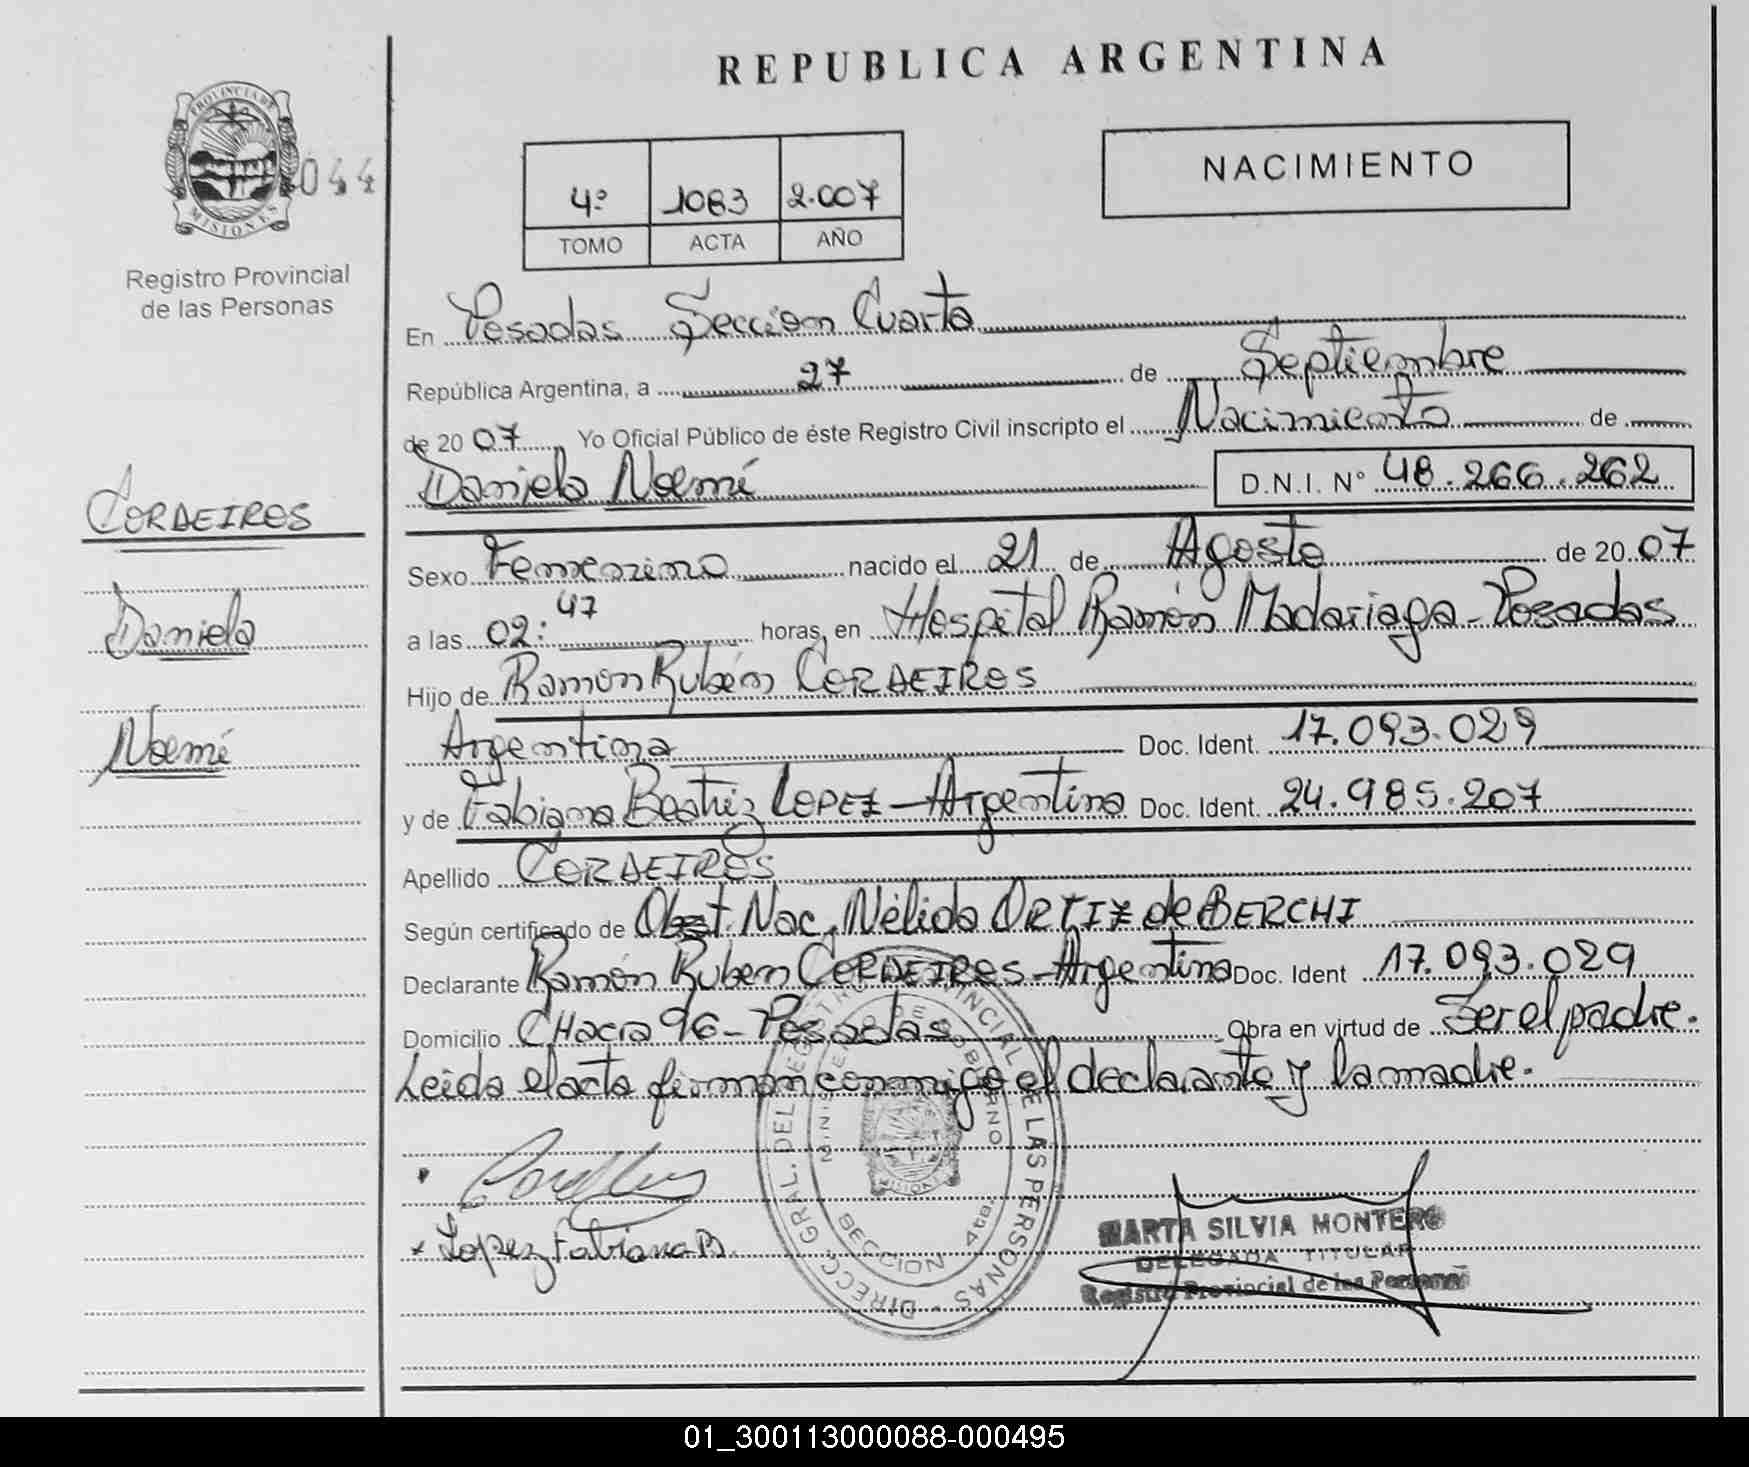 REPUBLICA ARGENTINA
PROVINCIA DE
MISIONES
044
Registro Provincial
de las Personas
4º 1083 2.007
TOMO ACTA AÑO
NACIMIENTO
En Posadas Sección Cuarta
República Argentina, a 27 de Septiembre
de 2007 Yo Oficial Público de éste Registro Civil inscripto el Nacimiento de
Daniela Noemí D.N.I. Nº 48.266.262
CORDEIROS
Daniela
Noemí
Sexo Femenino nacido el 21 de Agosto de 2007
a las 02:47 horas, en Hospital Ramón Madariaga - Posadas
Hijo de Ramón Rubén CORDEIROS
Argentina Doc. Ident. 17.093.029
y de Fabiana Beatriz LOPEZ - Argentina Doc. Ident. 24.985.207
Apellido CORDEIROS
Según certificado de Obst. Nac. Nélida ORTIZ de BERCHI
Declarante Ramón Ruben CORDEIROS - Argentina Doc. Ident 17.093.029
Domicilio CHacra 96 - Posadas Obra en virtud de Ser el padre.
Leida el acta firman conmigo el declarante y la madre.
Lopez Fabiana B.
DIRECC. GRAL. DEL REGISTRO PROVINCIAL DE LAS PERSONAS
SECCION 4ta.
MISIONES
MARTA SILVIA MONTERO
DELEGADA TITULAR
Registro Provincial de las Personas
01_300113000088-000495